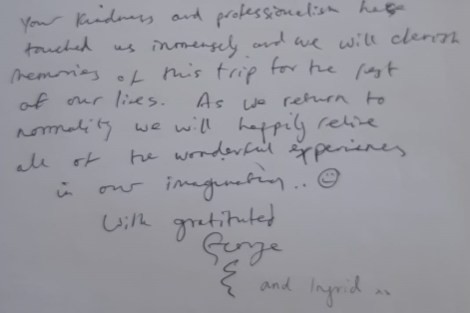 Your kindness and professionalism have
touched us immensely and we will cherish
memories of this trip for the rest
of our lives. As we return to
normality we will happily relive
all of the wonderful experiences
in our imagination.. ☺
With gratituted
George
& and Ingrid ..